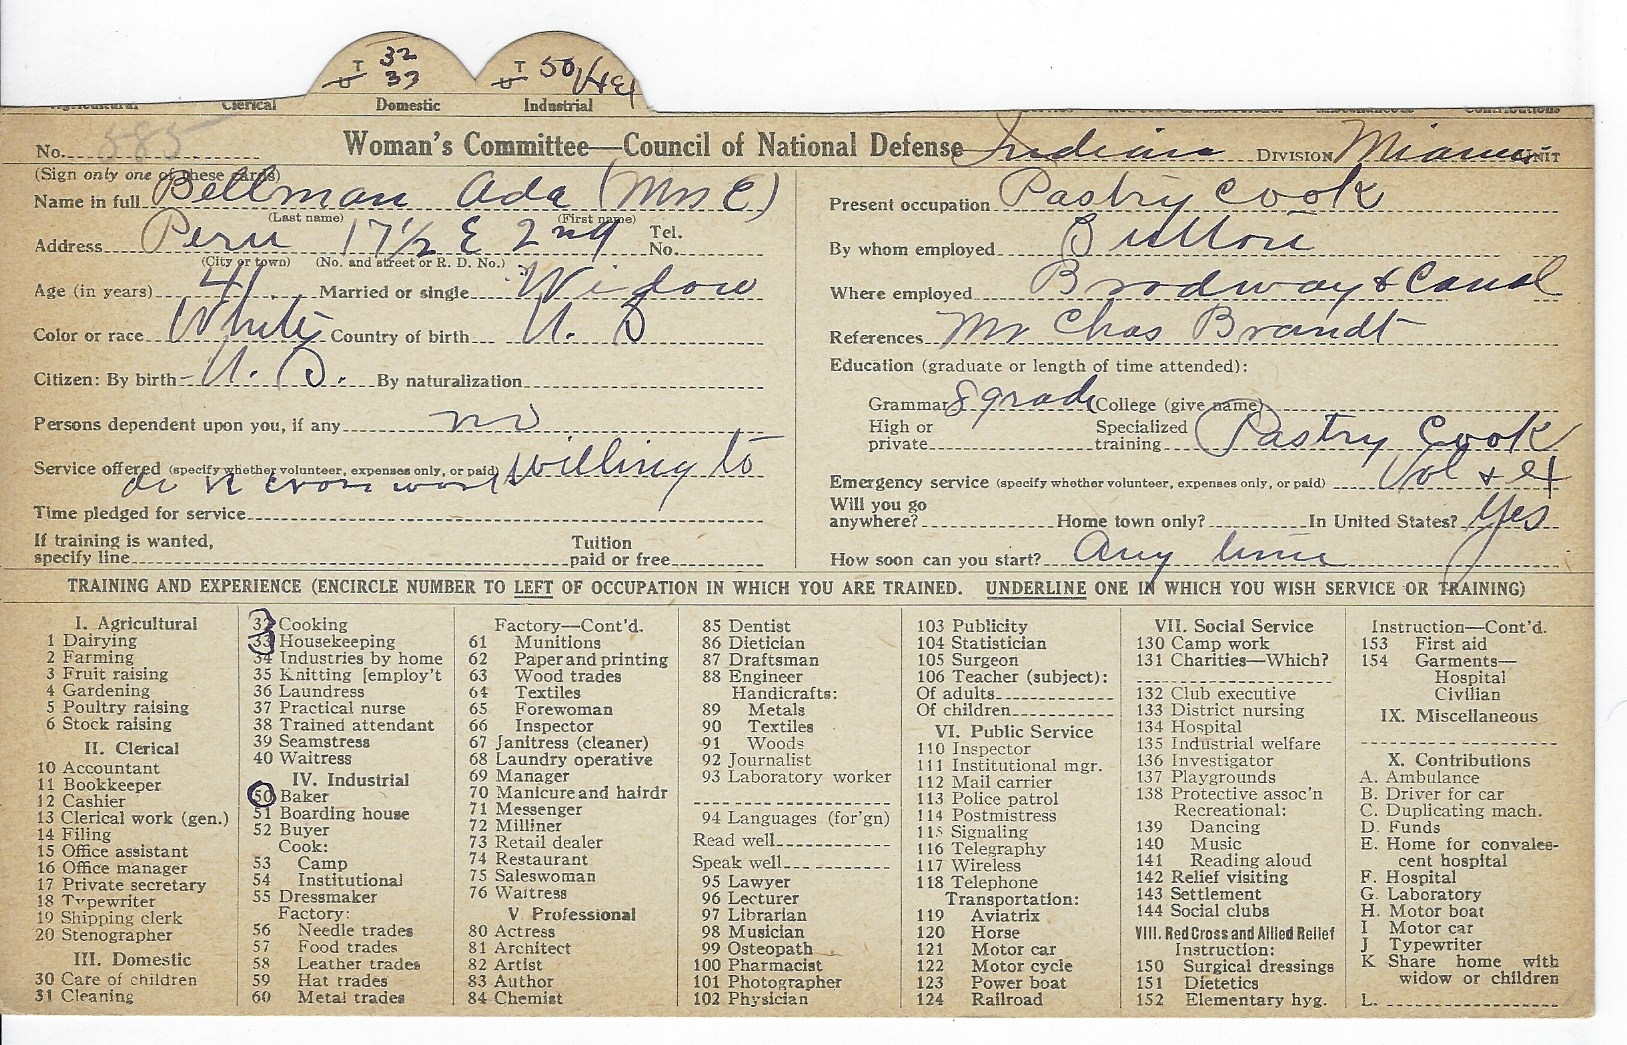 T 32
U 33
T 50
U
Agricultural Clerical Domestic Industrial Contributions
No. 585
Woman's Committee—Council of National Defense Indiana DIVISION Miami UNIT
(Sign only one of these cards)
Name in full Bellman Ada (Mrs E)
(Last name) (First name)
Address Peru 17½ E 2nd Tel. No.
(City or town) (No. and street or R. D. No.)
Age (in years) 41 Married or single Widow
Color or race White Country of birth U. S
Citizen: By birth U. S. By naturalization
Persons dependent upon you, if any no
Service offered (specify whether volunteer, expenses only, or paid) Willing to
do R cross work
Time pledged for service
If training is wanted,
specify line
Tuition
paid or free
Present occupation Pastry Cook
By whom employed
Where employed Brodway & Canal
References Mr Chas Brandt
Education (graduate or length of time attended):
Grammar 8 grade College (give name)
High or
private
Specialized
training Pastry Cook
Emergency service (specify whether volunteer, expenses only, or paid) Vol & ex
Will you go
anywhere? Home town only? In United States? Yes
How soon can you start? Any time
TRAINING AND EXPERIENCE (ENCIRCLE NUMBER TO LEFT OF OCCUPATION IN WHICH YOU ARE TRAINED. UNDERLINE ONE IN WHICH YOU WISH SERVICE OR TRAINING)
I. Agricultural
1 Dairying
2 Farming
3 Fruit raising
4 Gardening
5 Poultry raising
6 Stock raising
II. Clerical
10 Accountant
11 Bookkeeper
12 Cashier
13 Clerical work (gen.)
14 Filing
15 Office assistant
16 Office manager
17 Private secretary
18 Typewriter
19 Shipping clerk
20 Stenographer
III. Domestic
30 Care of children
31 Cleaning
32 Cooking
33 Housekeeping
34 Industries by home
35 Knitting [employ't
36 Laundress
37 Practical nurse
38 Trained attendant
39 Seamstress
40 Waitress
IV. Industrial
50 Baker
51 Boarding house
52 Buyer
Cook:
53 Camp
54 Institutional
55 Dressmaker
Factory:
56 Needle trades
57 Food trades
58 Leather trades
59 Hat trades
60 Metal trades
Factory—Cont'd.
61 Munitions
62 Paper and printing
63 Wood trades
64 Textiles
65 Forewoman
66 Inspector
67 Janitress (cleaner)
68 Laundry operative
69 Manager
70 Manicure and hairdr
71 Messenger
72 Milliner
73 Retail dealer
74 Restaurant
75 Saleswoman
76 Waitress
V. Professional
80 Actress
81 Architect
82 Artist
83 Author
84 Chemist
85 Dentist
86 Dietician
87 Draftsman
88 Engineer
Handicrafts:
89 Metals
90 Textiles
91 Woods
92 Journalist
93 Laboratory worker
94 Languages (for'gn)
Read well
Speak well
95 Lawyer
96 Lecturer
97 Librarian
98 Musician
99 Osteopath
100 Pharmacist
101 Photographer
102 Physician
103 Publicity
104 Statistician
105 Surgeon
106 Teacher (subject):
Of adults
Of children
VI. Public Service
110 Inspector
111 Institutional mgr.
112 Mail carrier
113 Police patrol
114 Postmistress
115 Signaling
116 Telegraphy
117 Wireless
118 Telephone
Transportation:
119 Aviatrix
120 Horse
121 Motor car
122 Motor cycle
123 Power boat
124 Railroad
VII. Social Service
130 Camp work
131 Charities—Which?
132 Club executive
133 District nursing
134 Hospital
135 Industrial welfare
136 Investigator
137 Playgrounds
138 Protective assoc'n
Recreational:
139 Dancing
140 Music
141 Reading aloud
142 Relief visiting
143 Settlement
144 Social clubs
VIII. Red Cross and Allied Relief
Instruction:
150 Surgical dressings
151 Dietetics
152 Elementary hyg.
Instruction—Cont'd.
153 First aid
154 Garments—
Hospital
Civilian
IX. Miscellaneous
X. Contributions
A. Ambulance
B. Driver for car
C. Duplicating mach.
D. Funds
E. Home for convales-
cent hospital
F. Hospital
G. Laboratory
H. Motor boat
I. Motor car
J. Typewriter
K Share home with
widow or children
L.